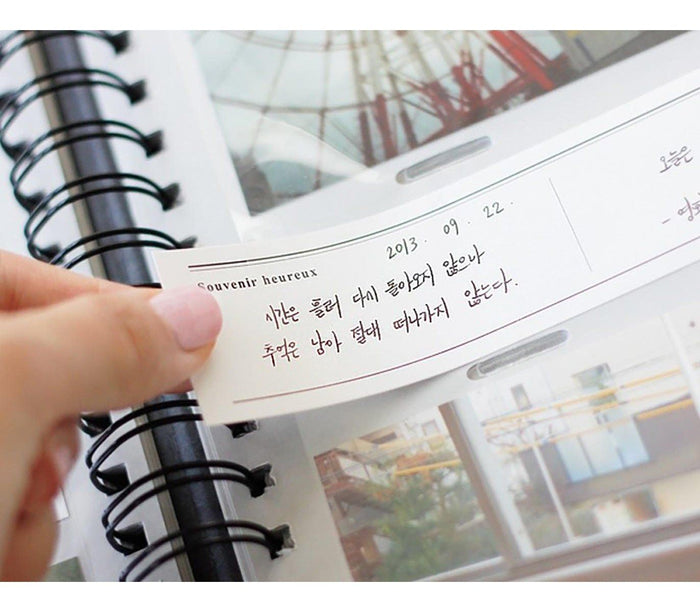 Souvenir heureux
2013. 09. 22.
시간은 흘러 다시 돌아오지 않으나
추억은 남아 절대 떠나가지 않는다.
오늘은